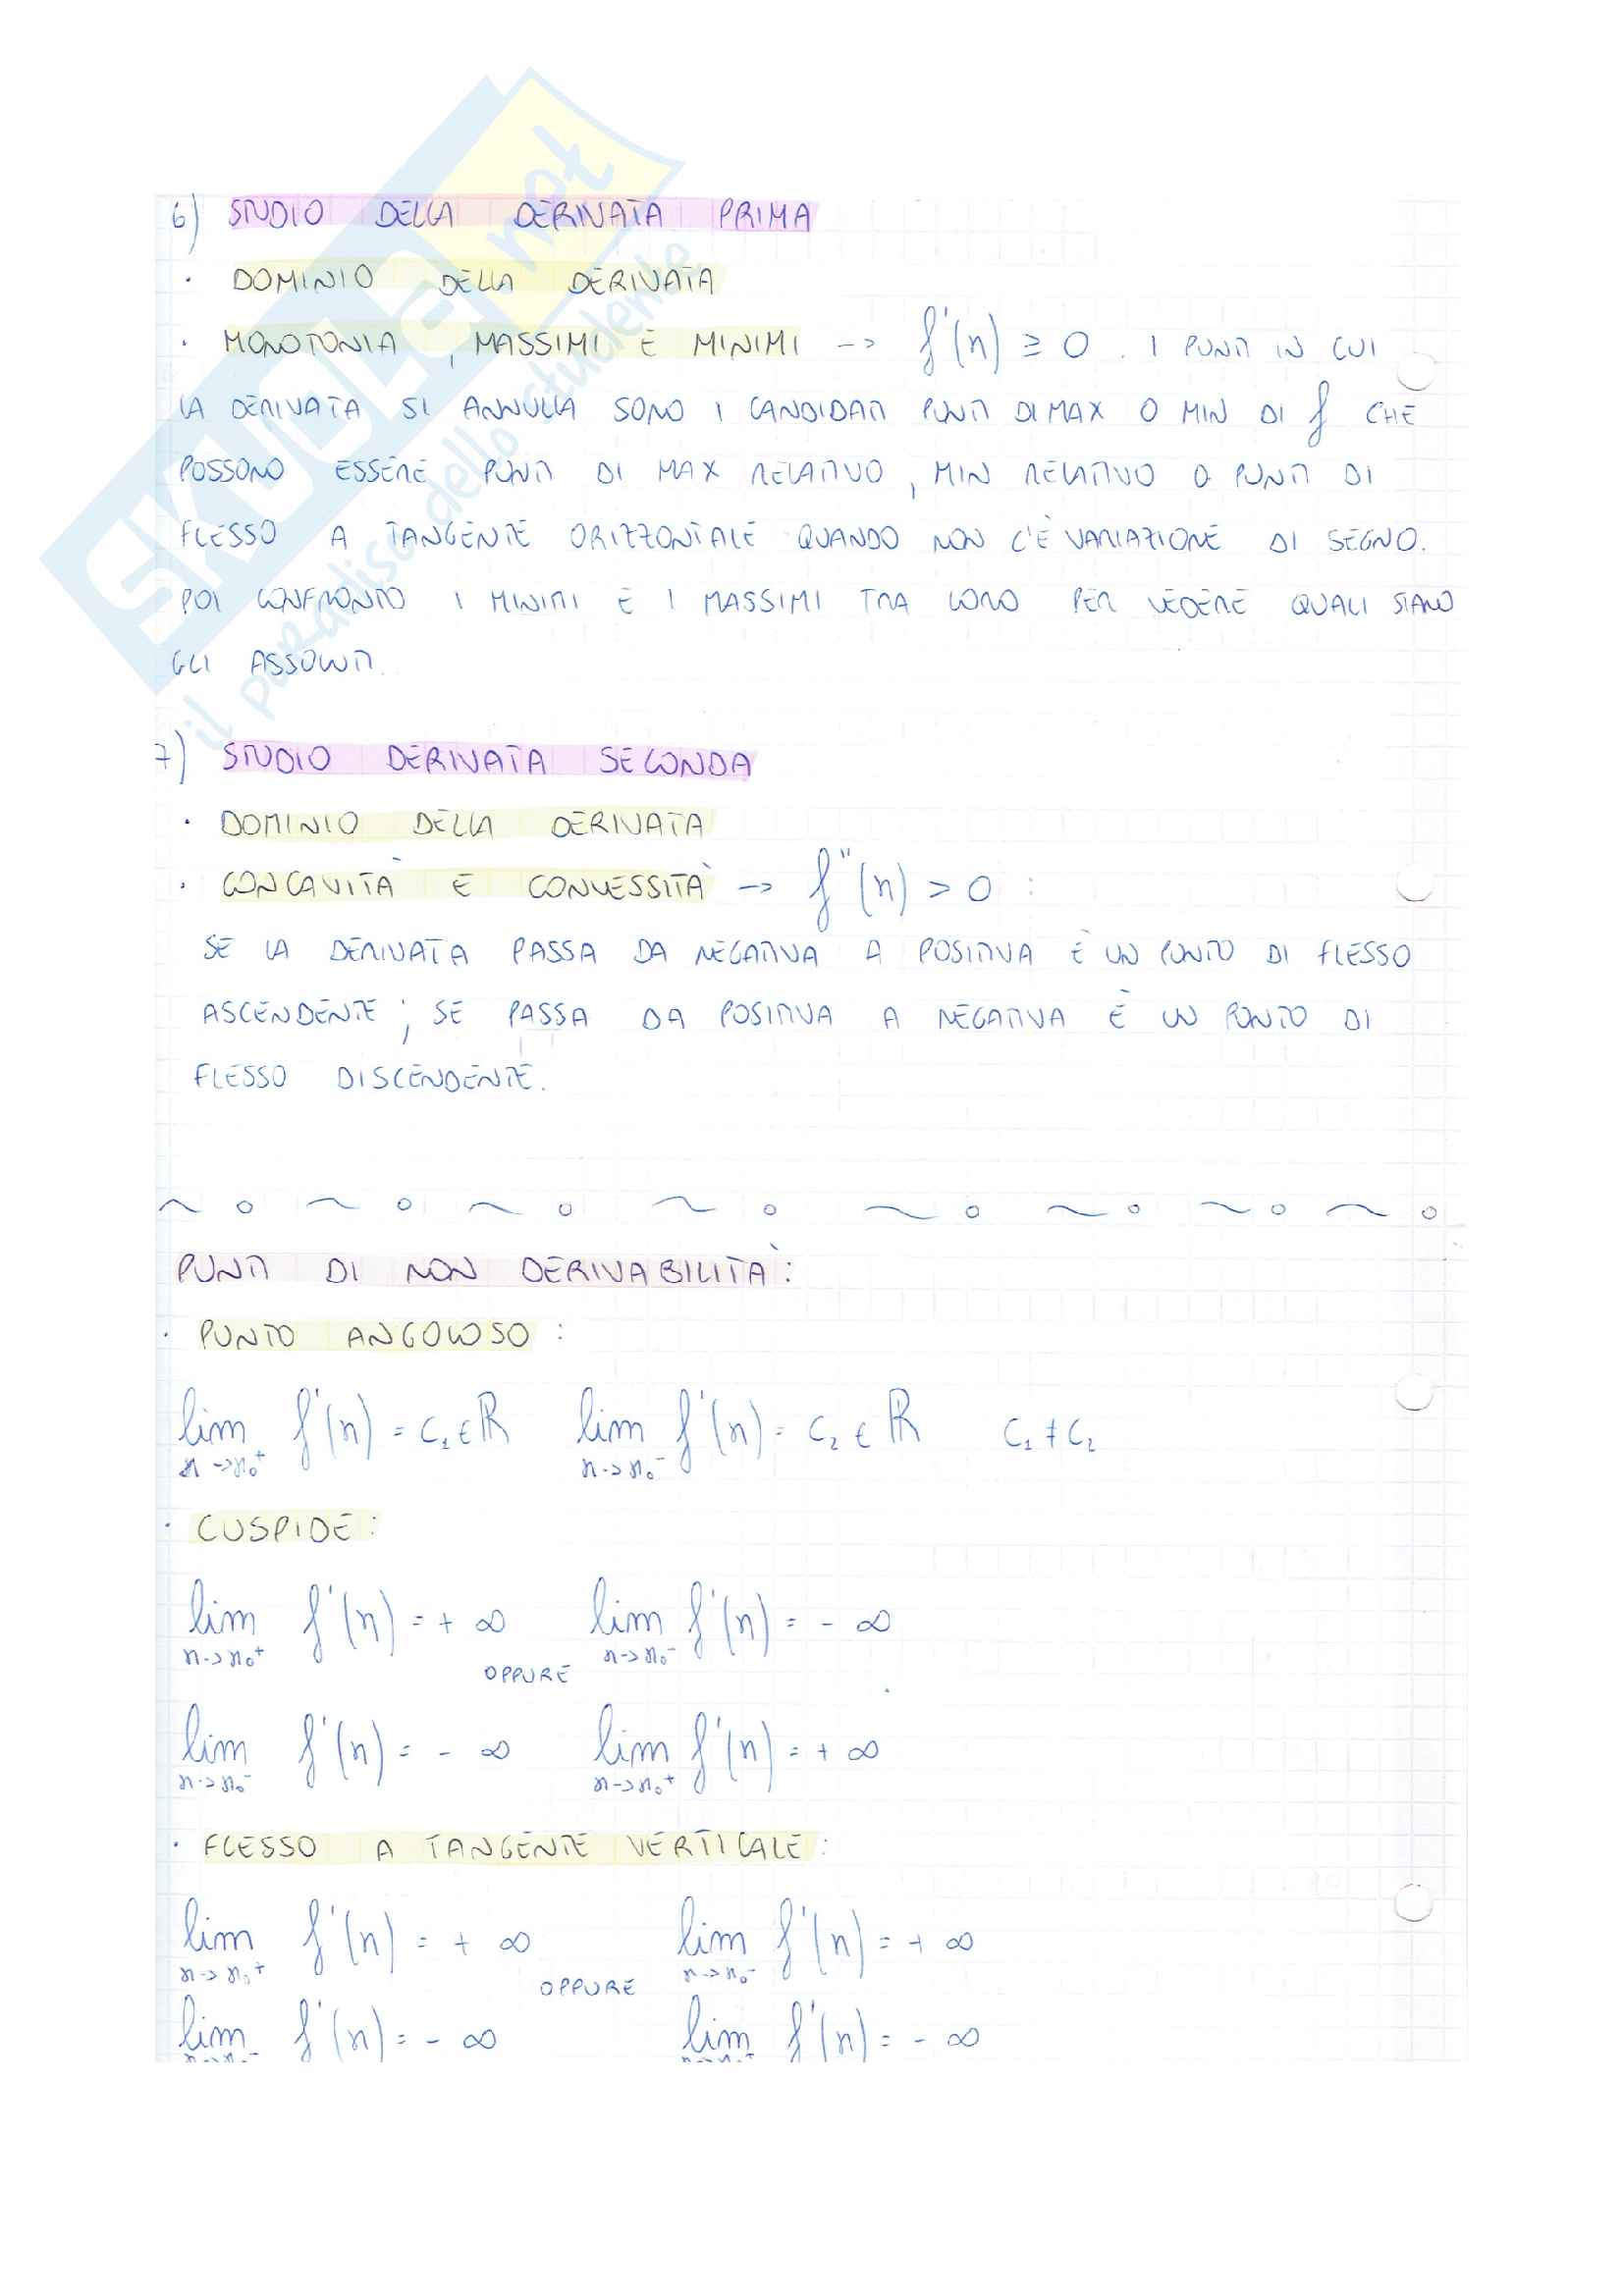 SKUOLA.not
il paradiso dello studente
6) STUDIO DELLA DERIVATA PRIMA
· DOMINIO DELLA DERIVATA
· MONOTONIA, MASSIMI E MINIMI -> f'(x) ≥ 0. I PUNTI IN CUI
LA DERIVATA SI ANNULLA SONO I CANDIDATI PUNTI DI MAX O MIN DI f CHE
POSSONO ESSERE PUNTI DI MAX RELATIVO, MIN RELATIVO O PUNTI DI
FLESSO A TANGENTE ORIZZONTALE QUANDO NON C'È VARIAZIONE DI SEGNO.
POI CONFRONTO I MINIMI E I MASSIMI TRA LORO PER VEDERE QUALI SIANO
GLI ASSOLUTI.
7) STUDIO DERIVATA SECONDA
· DOMINIO DELLA DERIVATA
· CONCAVITÀ E CONVESSITÀ -> f''(x) > 0 :
SE LA DERIVATA PASSA DA NEGATIVA A POSITIVA È UN PUNTO DI FLESSO
ASCENDENTE; SE PASSA DA POSITIVA A NEGATIVA È UN PUNTO DI
FLESSO DISCENDENTE.
PUNTI DI NON DERIVABILITÀ:
· PUNTO ANGOLOSO :
lim x->x₀⁺ f'(x) = c₁ ∈ ℝ lim x->x₀⁻ f'(x) = c₂ ∈ ℝ c₁ ≠ c₂
· CUSPIDE:
lim x->x₀⁺ f'(x) = + ∞ lim x->x₀⁻ f'(x) = - ∞
OPPURE
lim x->x₀⁻ f'(x) = - ∞ lim x->x₀⁺ f'(x) = + ∞
· FLESSO A TANGENTE VERTICALE:
lim x->x₀⁺ f'(x) = + ∞ lim x->x₀⁻ f'(x) = + ∞
OPPURE
lim x->x₀⁻ f'(x) = - ∞ lim x->x₀⁺ f'(x) = - ∞